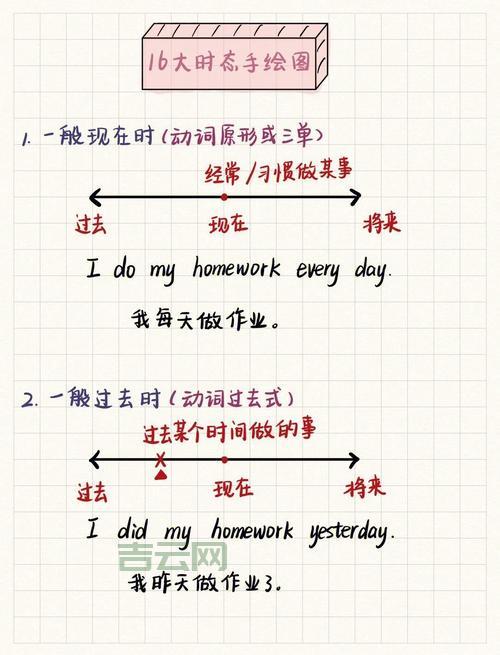 16大时态手绘图
1. 一般现在时(动词原形或三单)
经常/习惯做某事
过去 现在 将来
I do my homework every day.
我每天做作业。
2. 一般过去时(动词过去式)
过去某个时间做的事
过去 现在 将来
I did my homework yesterday.
吉云网
我昨天做作业了。